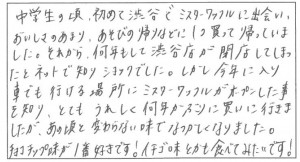 中学生の頃、初めて渋谷でミスターワッフルに出会い、
おいしさのあまり、あそびの帰りなどに1つ買って帰っていました
した。それから、何年もして渋谷店が閉店してしまっ
たとネットで知りショックでした。しかし今年に入り
車でも行ける場所にミスターワッフルがオープンした事
を知り、とても うれしく何年かぶりに買いに行きま
したが、あの頃と変わらない味でなつかしくなりました。
チョコチップ味が1番好きです！イチゴ味とかも食べてみたいです！